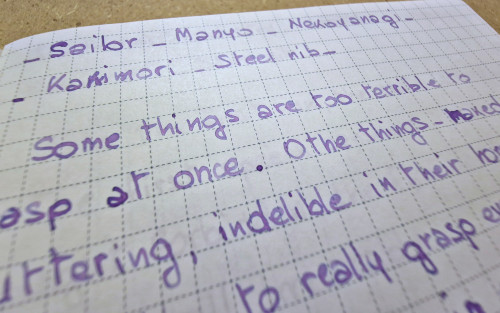 - Sailor - Manyo - Nekoyanagi -
- Kakimori - Steel nib -
Some things are too terrible to
asp at once. Othe things - 
urtering, indelible in their
to really grasp